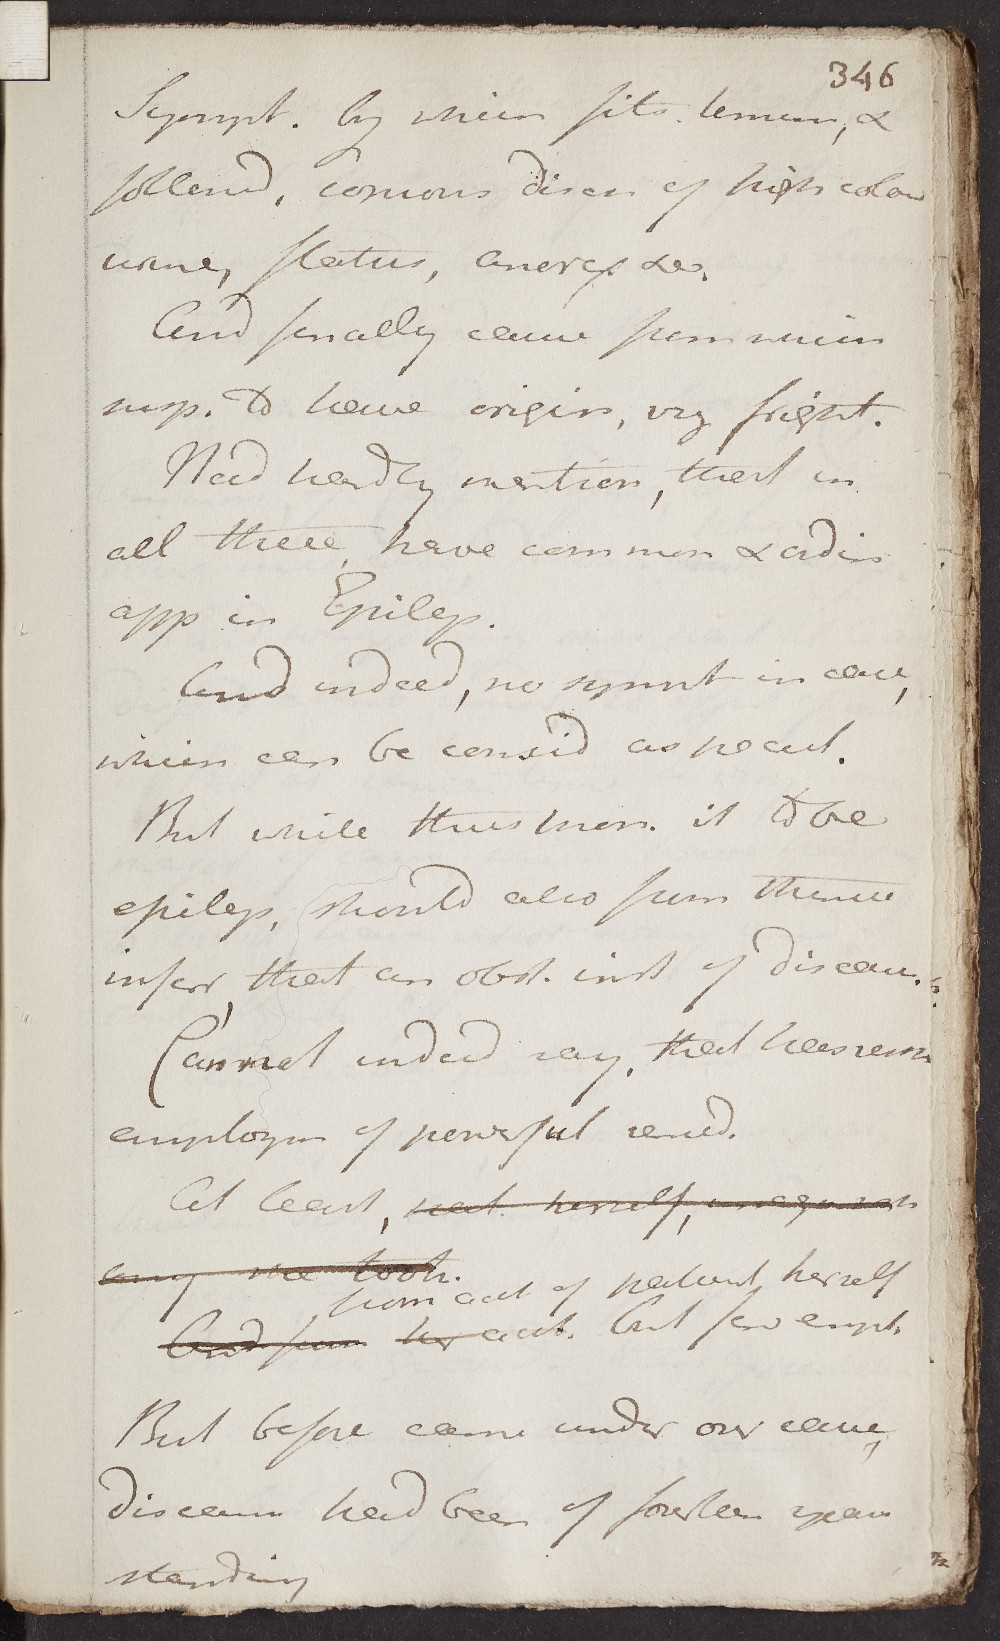 346
Sympt. by which fits termin, &
followd, copious disch of high colou
urine, flatus, anorex &c.
And finally cause from which
supp. to have origin, viz fright.
Need hardly mention, that in
all these, have common & ordin
app in Epilep.
And indeed, no sympt in case,
which can be consid as pecul.
But while thus pron. it to be
epilep, should also from thence
infer, that an obst. inst of disease.
Cannot indeed say, that has resis
employm of powerful remed.
At least, not herself,
any we took.
from acct of patient herself
And from her acct. but few empl.
But before came under our care,
disease had been of fourteen years
standing